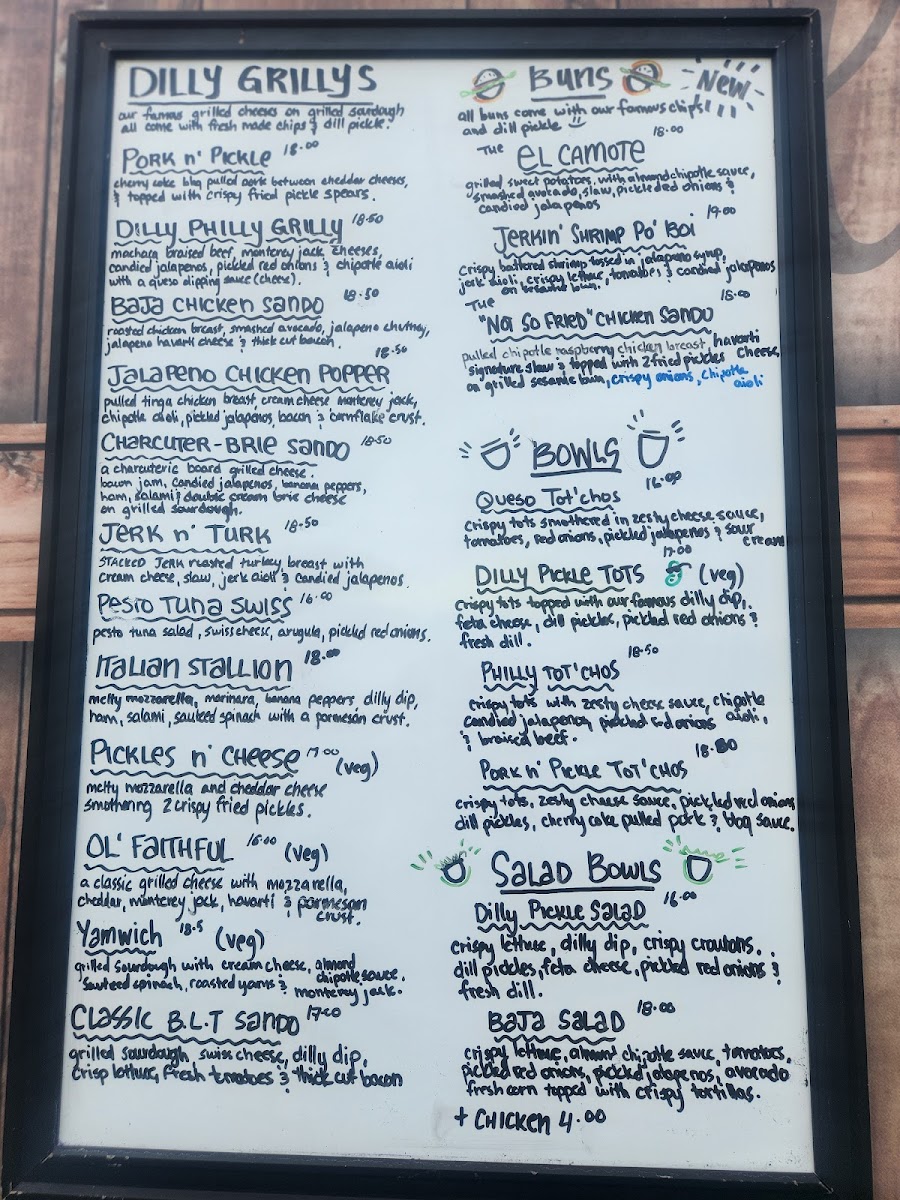 DILLY GRILLYS
our famous grilled cheeses on grilled sourdough
all come with fresh made chips & dill pickle!
PORK n' PICKLE 18.00
cherry coke bbq pulled pork between cheddar cheeses,
& topped with crispy fried pickle spears.
DILLY PHILLY GRILLY 18.50
machaca braised beef, monterey jack, cheeses,
candied jalapenos, pickled red onions & chipotle aioli
with a queso dipping sauce (cheese).
BAJA CHICKEN SANDO 18.50
roasted chicken breast, smashed avocado, jalapeno chutney,
jalapeno havarti cheese & thick cut bacon.
18.50
JALAPENO CHICKEN POPPER
pulled tinga chicken breast, cream cheese monterey jack,
chipotle aioli, pickled jalapenos, bacon & cornflake crust.
CHARCUTER-BRIE SANDO 18.50
a charcuterie board grilled cheese.
bacon jam, candied jalapenos, banana peppers,
ham, salami & double cream brie cheese
on grilled sourdough.
JERK n' TURK 18.50
STACKED JERK roasted turkey, breast with
cream cheese, slaw, jerk aioli & candied jalapenos.
PESTO TUNA SWISS 16.00
pesto tuna salad, swiss cheese, arugula, pickled red onions.
ITALIAN STALLION 18.00
melty mozzarella, marinara, banana peppers, dilly dip,
ham, salami, sauteed spinach with a parmesan crust.
PICKLES n' CHEESE 17.00 (veg)
melty mozzarella and cheddar cheese
smothering 2 crispy fried pickles.
OL' FAITHFUL 16.00 (veg)
a classic grilled cheese with mozzarella,
cheddar, monterey jack, havarti & parmesan
crust.
Yamwich 18.5 (veg)
grilled sourdough with cream cheese, almond
chipotle sauce,
sauteed spinach, roasted yams & monterey jack.
CLASSIC B.L.T SANDO 17.00
grilled sourdough, swiss cheese, dilly dip,
crisp lettuce, fresh tomatoes & thick cut bacon
BUNS New
all buns come with our famous chips!
and dill pickle
18.00
THE EL CAMOTE
grilled sweet potatoes, with almond chipotle sauce,
smashed avocado, slaw, pickleded onions &
candied jalapenos
19.00
JERKIN' SHRIMP PO' BOI
Crispy battered shrimp tossed in jalapeno syrup,
jerk aioli, crispy lettuce, tomatoes & candied jalapenos
on sesame bun.
THE 18.00
"NOT SO FRIED" CHICKEN SANDO
pulled chipotle raspberry chicken breast, havarti
signature slaw & topped with 2 fried pickles cheese,
on grilled sesame bun, crispy onions, chipotle
aioli
BOWLS
16.00
QUESO TOT'CHOS
crispy tots smothered in zesty cheese sauce,
tomatoes, red onions, pickled jalapenos & sour
cream
17.00
DILLY PICKLE TOTS (veg)
Crispy tots topped with our famous dilly dip,
feta cheese, dill pickles, pickled red onions &
fresh dill.
18.50
PHILLY TOT'CHOS
crispy tots with zesty cheese sauce, chipotle
candied jalapenos, pickled red onions aioli,
& braised beef.
PORK n' PICKLE TOT'CHOS
crispy tots, zesty cheese sauce, pickled red onions
dill pickles, cherry coke pulled pork & bbq sauce.
SALAD BOWLS
16.00
Dilly PICKLE SALAD
crispy lettuce, dilly dip, crispy croutons,
dill pickles, feta cheese, pickled red onions &
fresh dill.
18.00
BAJA SALAD
crispy lettuce, almond chipotle sauce, tomatoes,
pickled red onions, pickled jalapenos, avocado
fresh corn topped with crispy tortillas.
+ CHICKEN 4.00